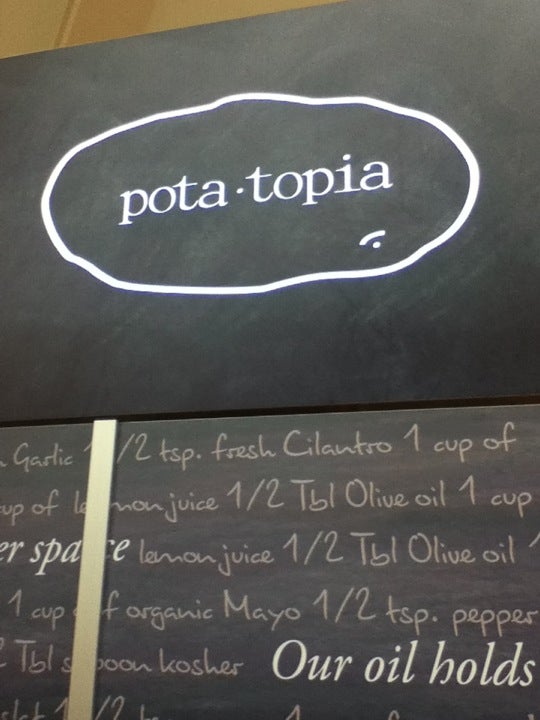 pota·topia
Garlic 1/2 tsp. fresh Cilantro 1 cup of
cup of lemon juice 1/2 Tbl Olive oil 1 cup
lemon juice 1/2 Tbl Olive oil
1 cup of organic Mayo 1/2 tsp. pepper
Tbl spoon kosher Our oil holds
1/2